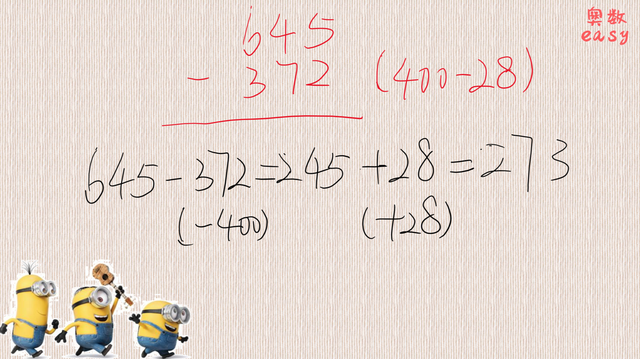 奥数
easy
645
- 372 (400-28)
645-372=245+28=273
(-400) (+28)